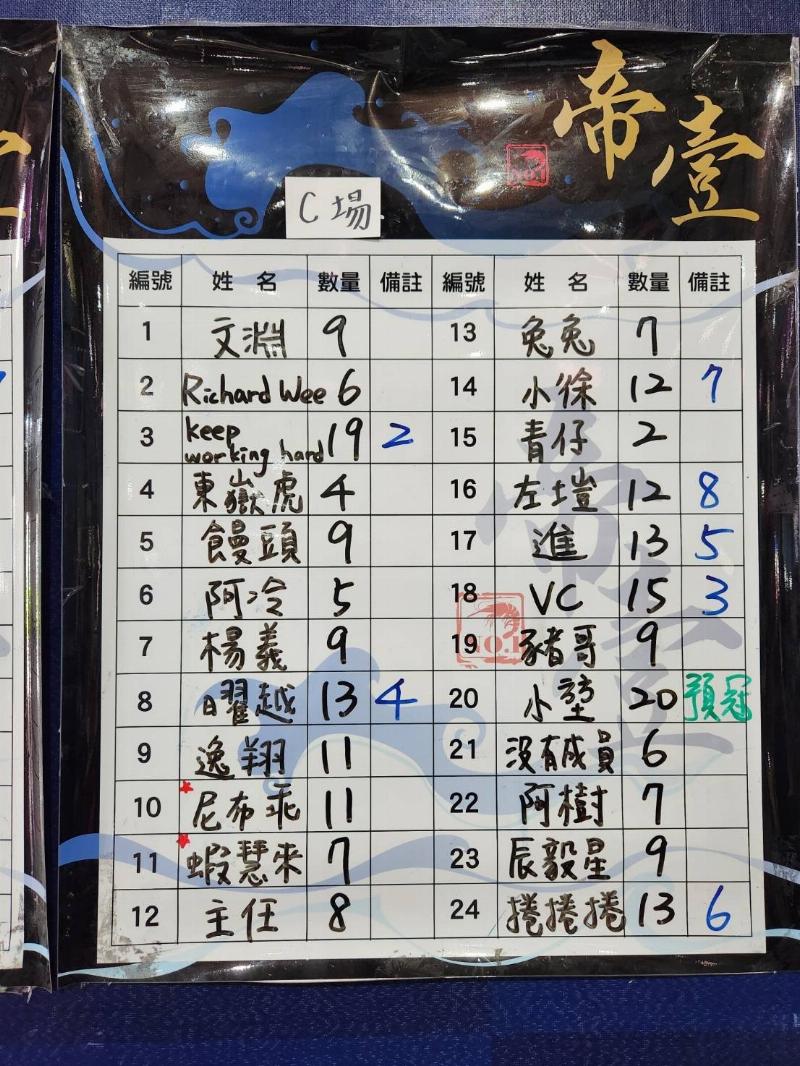 帝壹
NO.1
C場
編號 姓名 數量 備註 編號 姓名 數量 備註
1 文淵 9 13 兔兔 7
2 Richard Wee 6 14 小徐 12 7
3 keep working hard 19 2 15 青仔 2
4 東嶽虎 4 16 左塏 12 8
5 饅頭 9 17 進 13 5
6 阿冷 5 18 VC 15 3
7 楊義 9 19 豬哥 9
8 曜越 13 4 20 小堃 20 預冠
9 逸翔 11 21 沒有成員 6
10 尼布乖 11 22 阿樹 7
11 蝦慧來 7 23 辰毅星 9
12 主任 8 24 捲捲捲 13 6
帝壹
NO.1